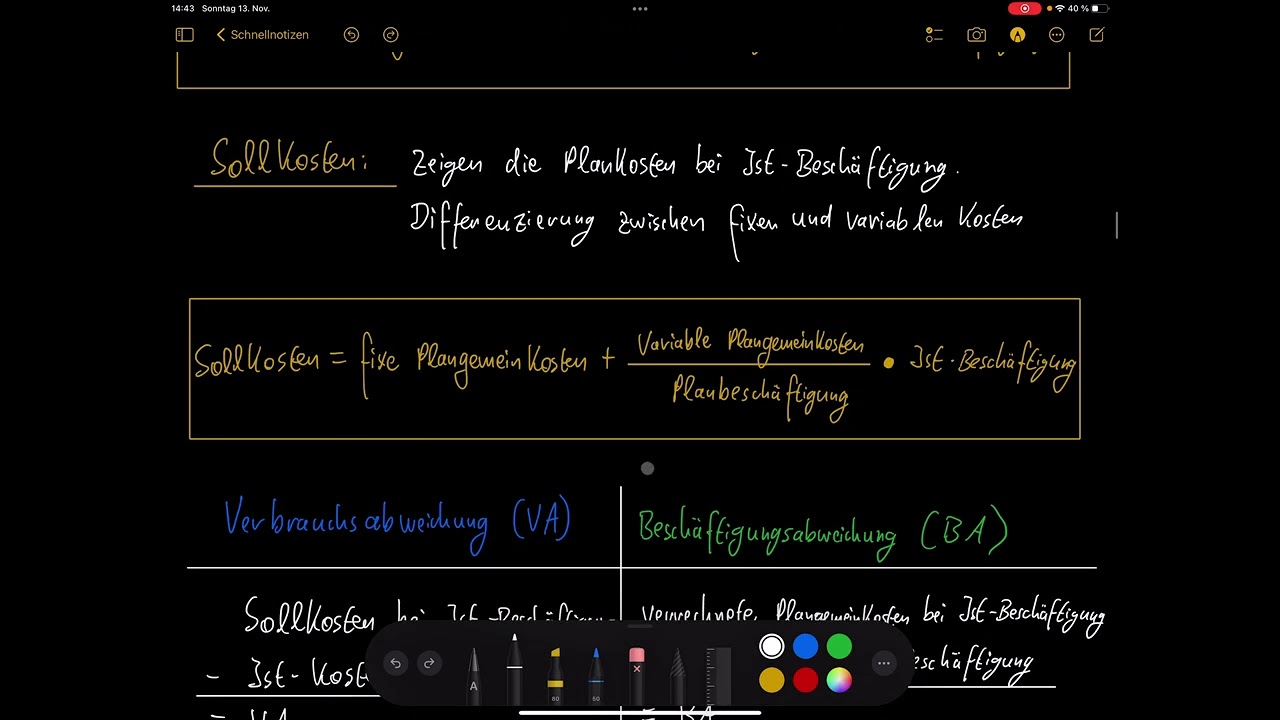 14:43 Sonntag 13. Nov.
40 %
Schnellnotizen
Sollkosten: Zeigen die Plankosten bei Ist-Beschäftigung.
Differenzierung zwischen fixen und variablen Kosten
Sollkosten = fixe Plangemeinkosten + Variable Plangemeinkosten
Planbeschäftigung • Ist-Beschäftigung
Verbrauchsabweichung (VA) Beschäftigungsabweichung (BA)
Sollkosten bei Ist- verrechnete Plangemeinkosten bei Ist-Beschäftigung
- Ist-Kost eschäftigung
= VA = BA
A 80 50